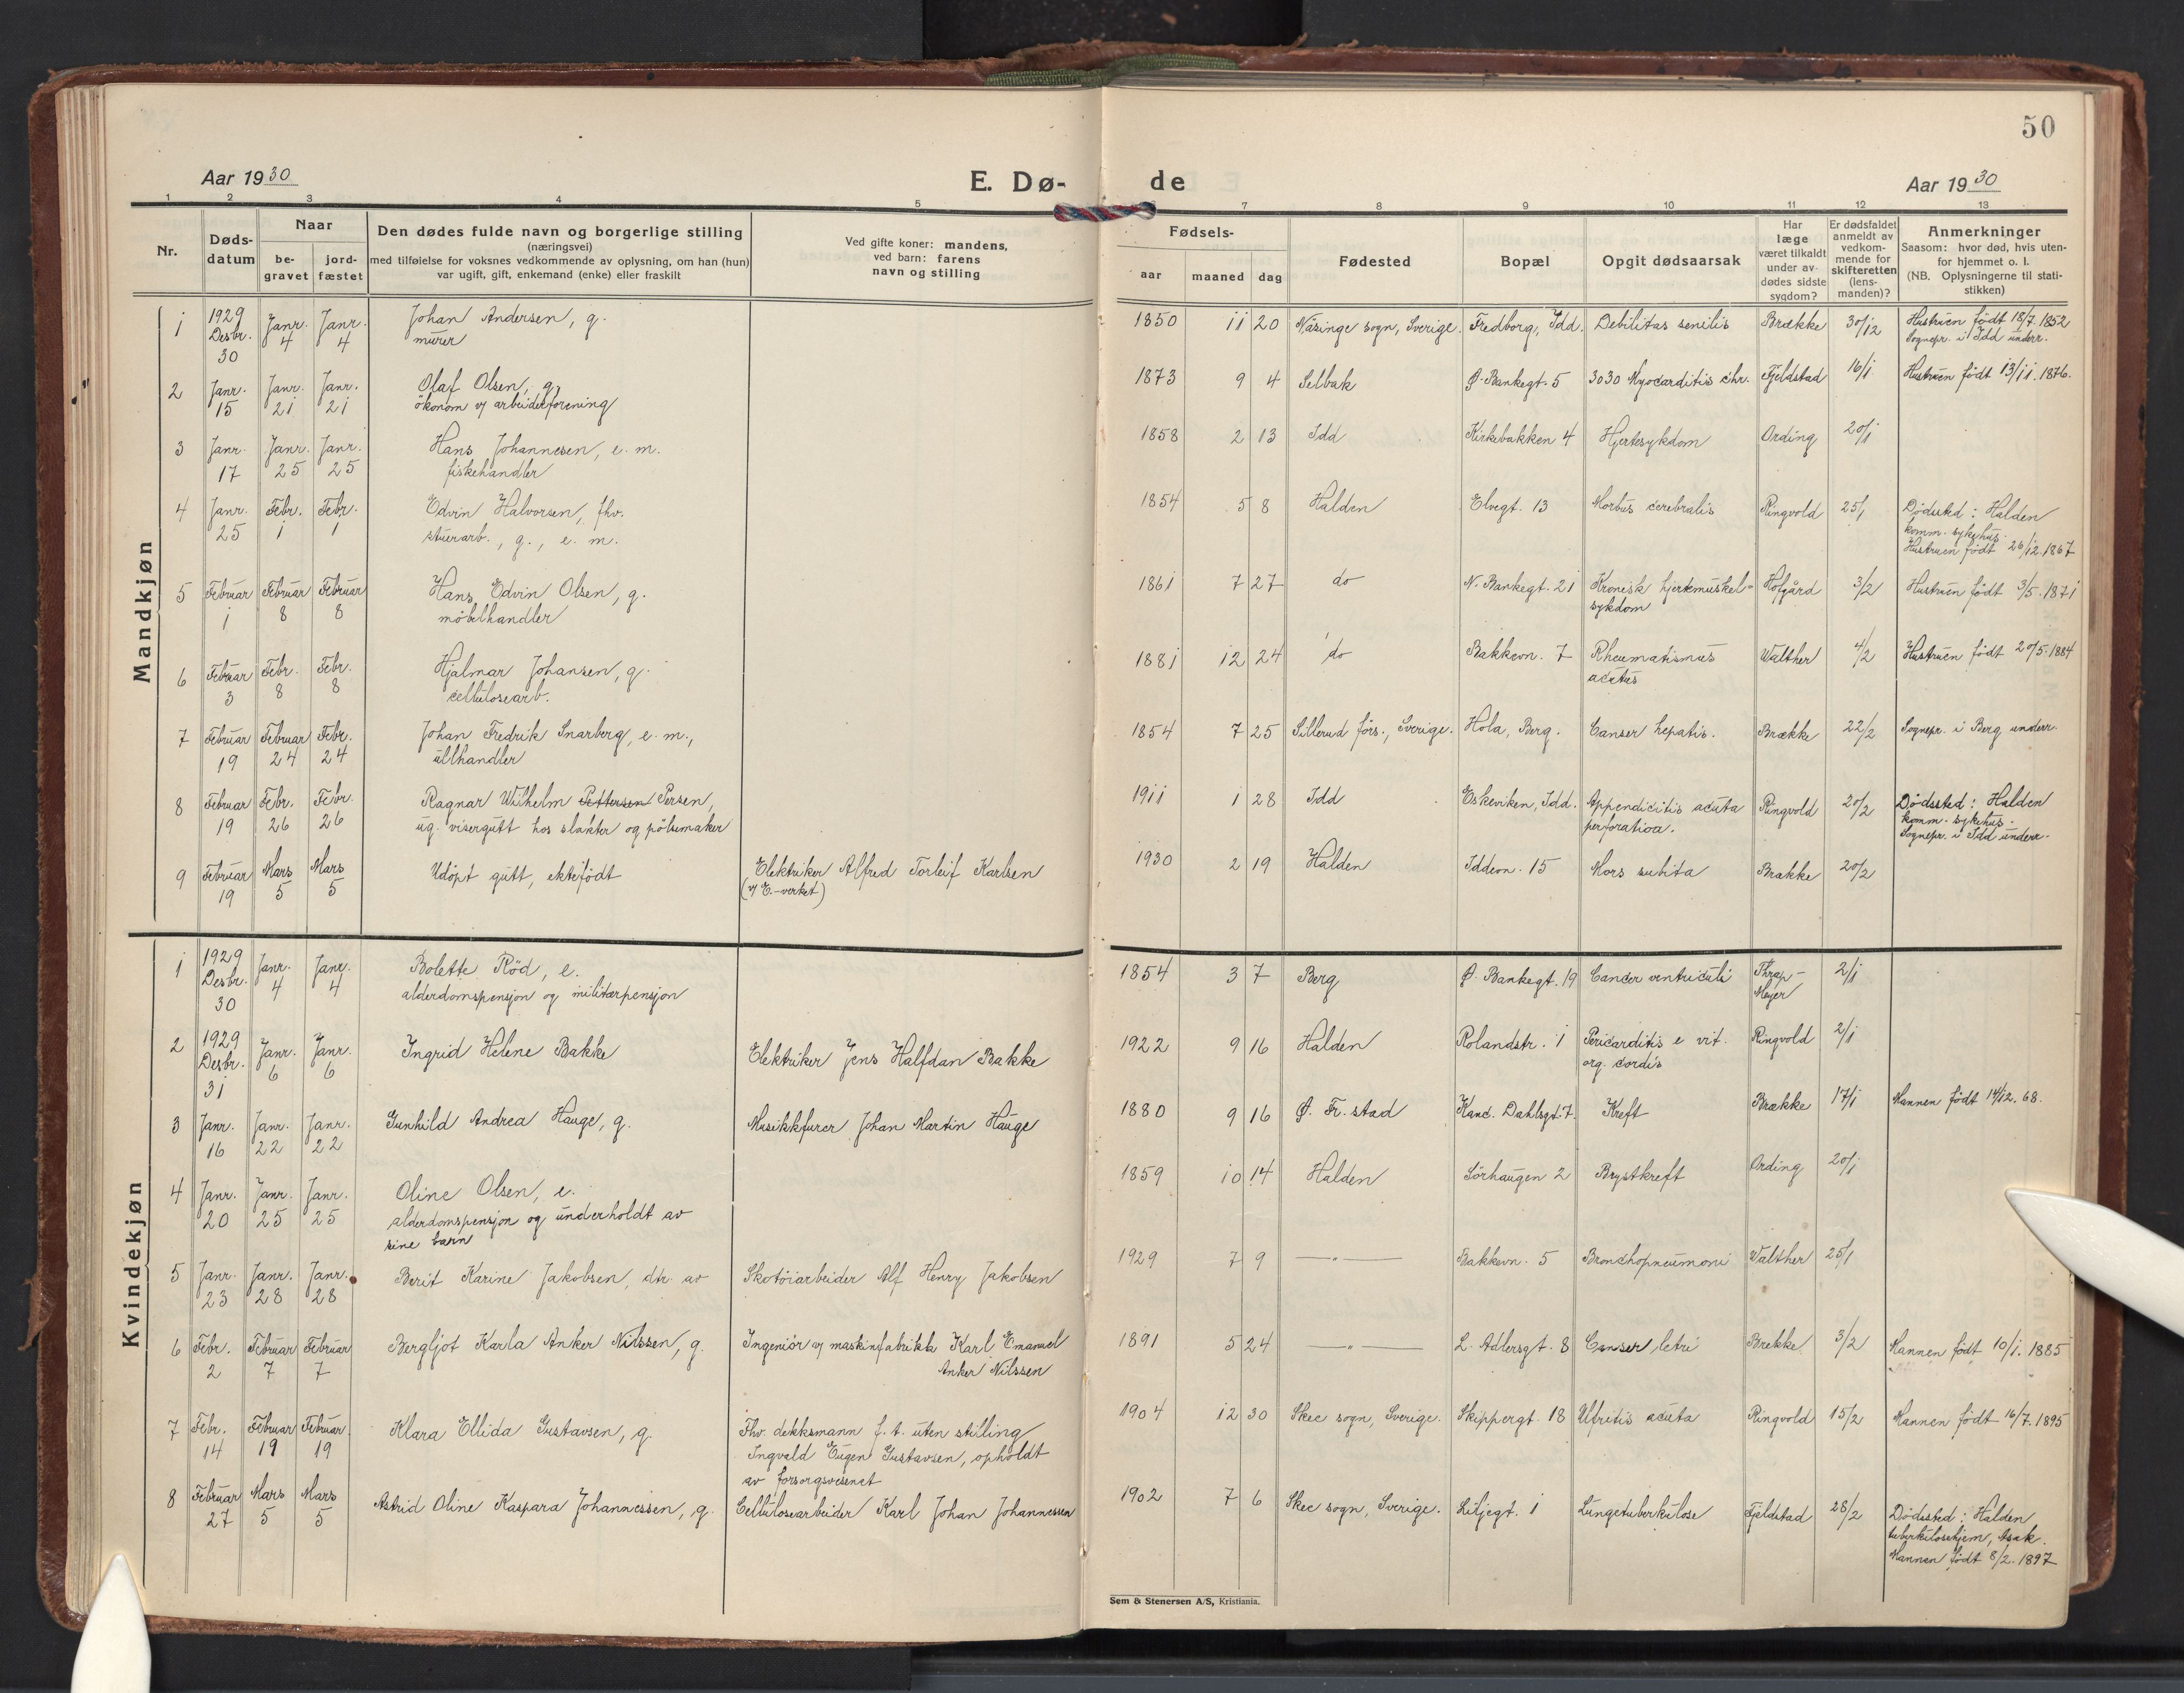 50
Aar 1930
E. Dø-
de
Aar 1930
1 2 3 4 5 6 7 8 9 10 11 12 13
Nr.
Døds-
datum
Naar
be-
gravet
jord-
fæstet
Den dødes fulde navn og borgerlige stilling
(næringsvei)
med tilføielse for voksnes vedkommende av oplysning, om han (hun)
var ugift, gift, enkemand (enke) eller fraskilt
Ved gifte koner: mandens,
ved barn: farens
navn og stilling
Fødsels-
aar maaned dag
Fødested
Bopæl
Opgit dødsaarsak
Har
læge
været tilkaldt
under av-
dødes sidste
sygdom?
Er dødsfaldet
anmeldt av
vedkom-
mende for
skifteretten
(lens-
manden)?
Anmerkninger
Saasom: hvor død, hvis uten-
for hjemmet o. l.
(NB. Oplysningerne til stati-
stikken)
Mandkjøn
1 1929 Desbr. 30 Janr. 4 Janr. 4 Johan Andersen, g.
murer
1850 11 20 Näsinge sogn, Sverige. Fredborg, Idd. Debilitas senilis Brække 30/12 Hustruen født 18/7. 1852
Sognepr. i Idd underr.
2 Janr. 15 Janr. 21 Janr. 21 Olaf Olsen, g.
økonom v/ arbeiderforening
1873 9 4 Selbak Ø. Bankegt. 5 3030 Myocarditis chr. Fjeldstad 16/1 Hustruen født 13/11. 1876.
3 Janr. 17 Janr. 25 Janr. 25 Hans Johannesen, e. m.
fiskehandler
1858 2 13 Idd Kirkebakken 4 Hjertesykdom Ording 20/1
4 Janr. 25 Febr. 1 Febr. 1 Edvin Halvorsen, fhv.
stuerarb., g., e. m.
1854 5 8 Halden Elvegt. 13 Morbus cerebralis Ringvold 25/1 Dødssted: Halden
komm. sykehus.
Hustruen født 26/12. 1867
5 Februar 1 Februar 8 Februar 8 Hans Edvin Olsen, g.
møbelhandler
1861 7 27 do N. Bankegt. 21 Kronisk hjertemuskel-
sykdom Hofgård 3/2 Hustruen født 3/5. 1871
6 Februar 3 Febr. 8 Febr. 8 Hjalmar Johansen, g.
cellulosearb.
1881 12 24 do Bakkevn. 7 Rheumatismus
acutus Walther 4/2 Hustruen født 20/5. 1884
7 Februar 19 Februar 24 Febr. 24 Johan Fredrik Snarberg, e. m.,
ullhandler
1854 7 25 Sillerud förs., Sverige. Hola, Berg. Canser hepatis. Brække 22/2 Sognepr. i Berg underr.
8 Februar 19 Febr. 26 Febr. 26 Ragnar Wilhelm Pettersen Persen,
ug. visergutt hos slakter og pølsemaker
1911 1 28 Idd Eskeviken, Idd. Appendicitis acuta
perforatioa. Ringvold 20/2 Dødssted: Halden
komm. sykehus.
Sognepr. i Idd underr.
9 Februar 19 Mars 5 Mars 5 Udøpt gutt, ektefødt Elektriker Alfred Torleif Karlsen
(v/ E.-verket)
1930 2 19 Halden Iddevn. 15 Mors subita Brække 20/2
Kvindekjøn
1 1929 Desbr. 30 Janr. 4 Janr. 4 Bolette Rød, e.
alderdomspensjon og militærpensjon
1854 3 7 Berg Ø. Bankegt. 19 Cancer ventriculi Thrap-
Meyer 2/1
2 1929 Desbr. 31 Janr. 6 Janr. 6 Ingrid Helene Bakke Elektriker Jens Halfdan Bakke
1922 9 16 Halden Rolandstr. 1 Pericarditis e vit.
org. cordis Ringvold 2/1
3 Janr. 16 Janr. 22 Janr. 22 Gunhild Andrea Hauge, g. Musikkfurer Johan Martin Hauge
1880 9 16 Ø. Fr. stad Kanc. Dahlsgt. 7 Kreft Brække 17/1 Mannen født 14/12. 68.
4 Janr. 20 Janr. 25 Janr. 25 Oline Olsen, e.
alderdomspensjon og underholdt av
sine barn
1859 10 14 Halden Sørhaugen 2 Brystkreft Ording 20/1
5 Janr. 23 Janr. 28 Janr. 28 Berit Karine Jakobsen, dtr. av Skotøiarbeider Alf Henry Jakobsen
1929 7 9 —"— Bakkevn. 5 Bronchopneumoni Walther 25/1
6 Febr. 2 Februar 7 Februar 7 Bergljot Karla Anker Nilssen, g. Ingeniør v/ maskinfabrikk Karl Emanuel
Anker Nilssen
1891 5 24 —"— L. Adlersgt. 8 Canser letri Brekke 3/2 Mannen født 10/1. 1885
7 Febr. 14 Februar 19 Februar 19 Klara Ellida Gustavsen, g. Fhv. dekksmann f. t. uten stilling
Ingvald Eugen Gustavsen, opholdt
av forsorgsvesenet
1904 12 30 Skee sogn, Sverige. Skippergt. 18 Ulfritis acuta Ringvold 15/2 Mannen født 16/7. 1895
8 Februar 27 Mars 5 Mars 5 Astrid Oline Kaspara Johannessen, g. Cellulosearbeider Karl Johan Johannessen
1902 7 6 Skee sogn, Sverige. Liljegt. 1 Lungetuberkulose Fjeldstad 28/2 Dødssted: Halden
tuberkulosehjem, Asak.
Mannen født 8/2. 1897
Sem & Stenersen A/S, Kristiania.